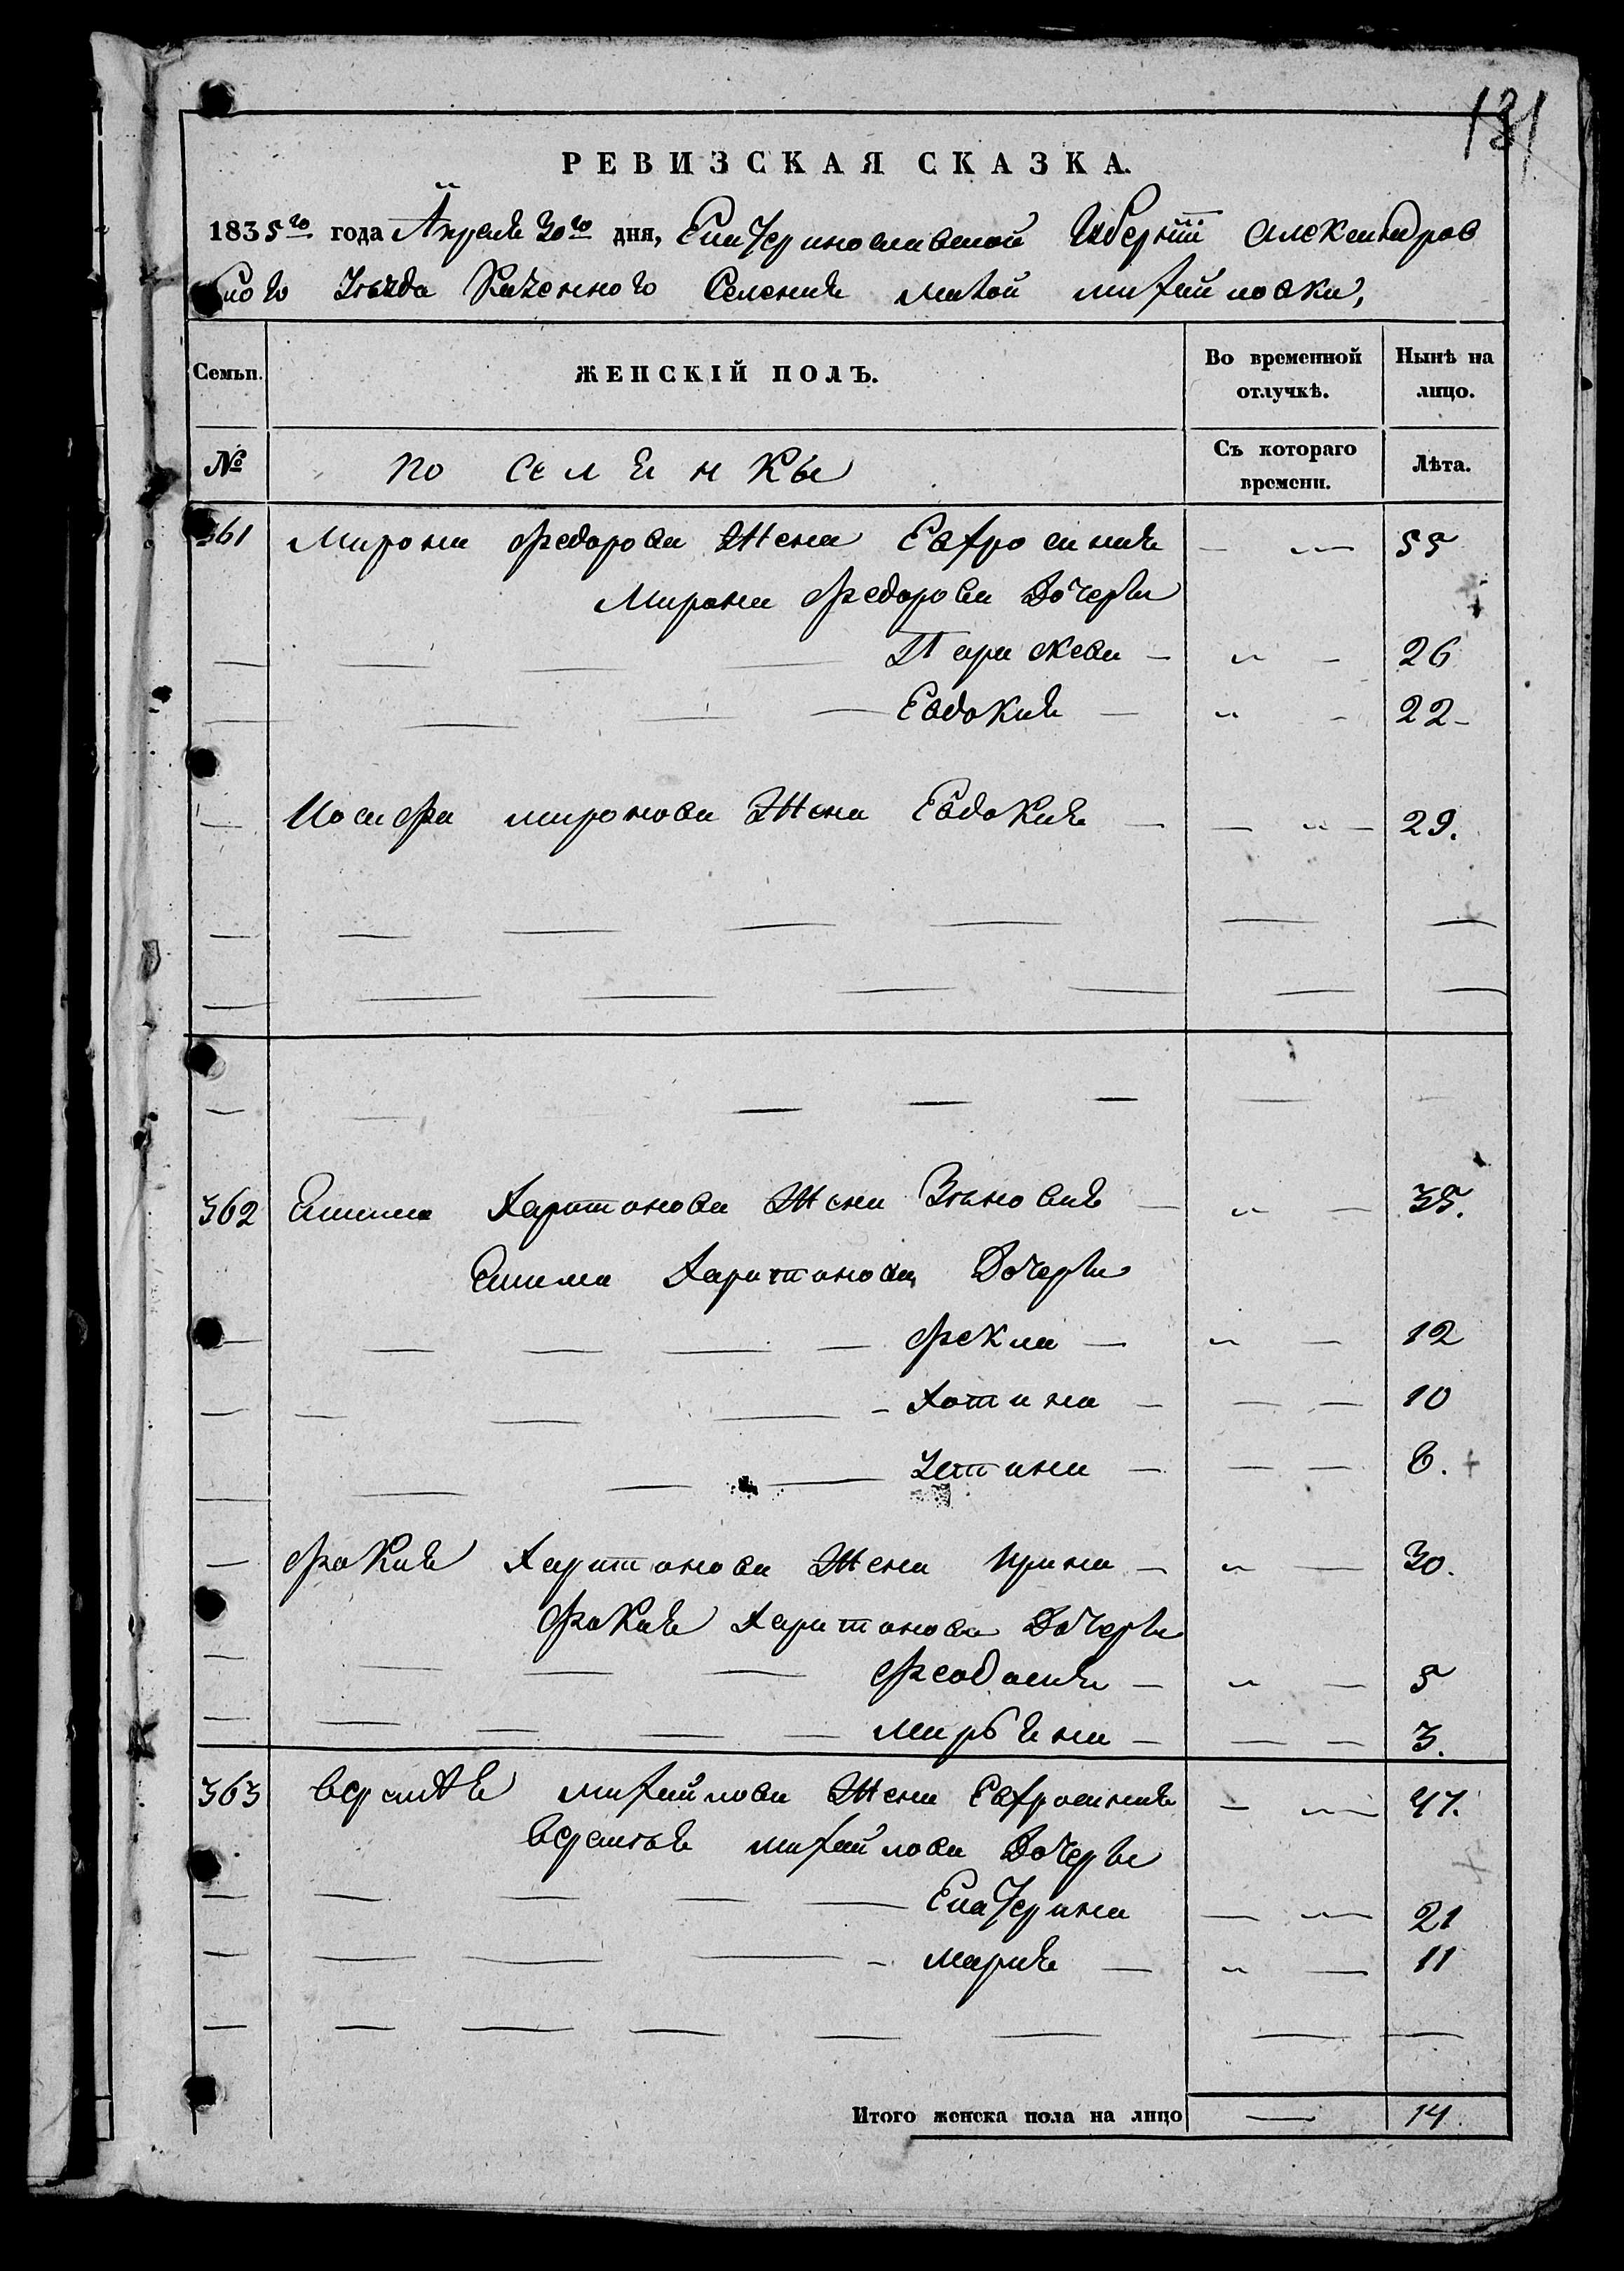 131
РЕВИЗСКАЯ СКАЗКА.
1835го года Апреля 30го дня, Екатеринославской Губернии Александров
ского Уезда Казенного Селения малой михайловки,
Семьи. ЖЕНСКІЙ ПОЛЪ. Во временной отлучкѣ. Нынѣ на лицо.
№ поселянкы Съ котораго времени. Лѣта.
361 Мирона Федорова Жена Евфросиния — 55
Мирона Федорова Дочеры
Параскева — 26
Евдокия — 22
Иосифа миронова Жена Евдокия — 29.
362 Екима Харитонова Жена Зѣновия — 35.
Екима Харитонова Дочеры
Фекла — 12
Хотина — 10
Устина — 6.
Фокия Харитонова Жена Ирина — 30.
Фокия Харитонова Дочеры
Феодосия — 5
марѣяна — 3.
363 Михайлова Жена Евфросиния — 47.
михайлова Дочеры
Екатерина — 21
Мария — 11
Итого женска пола на лицо — 14